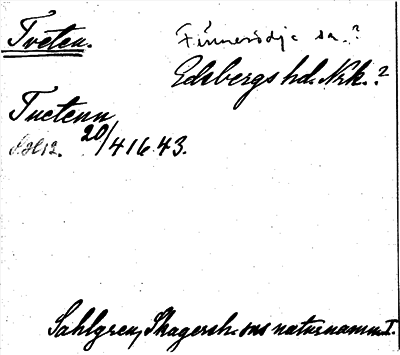 Tveten.
Finnerödja sn.?
Edsbergs hd. Nrk.?
Tuetenn
20/4 1643.
Sahlgren, Skagersh. sns naturnamn I.